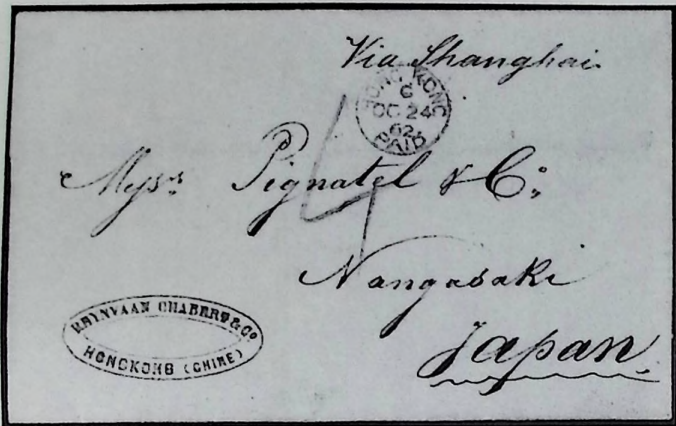 Via Shanghai
HONG KONG
C
OC 24
62
PAID
4
Messrs. Pignatel & Co:
Nangasaki
Japan
KRYNVAAN CHABERT & Co
HONGKONG (CHINE)